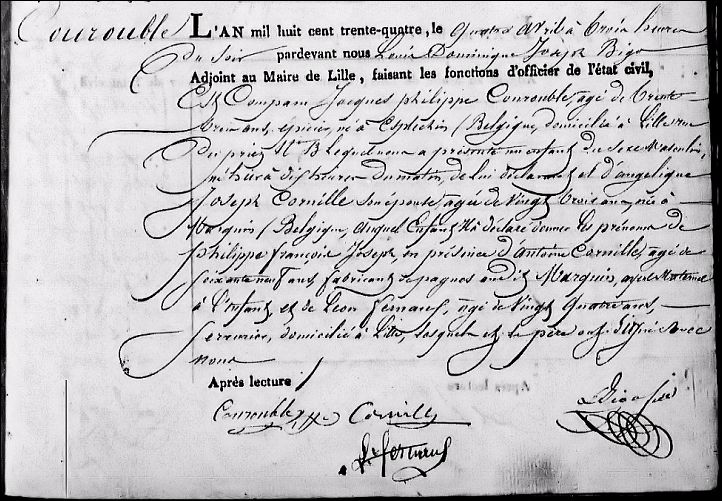 Courouble
L'AN mil huit cent trente-quatre, le quatre avril à trois heures
du soir pardevant nous Louis Dominique Joseph Bigo
Adjoint au Maire de Lille, faisant les fonctions d'officier de l'état civil,
Est Comparu Jacques philippe Courouble, agé de trente
trois ans, épicier, né à Esplechin (Belgique, domicilié à Lille rue
des prièz N. B Lequel nous a présenté un enfant du sexe Masculin,
né hier à dix heures du matin, de lui déclarant et d'angelique
Joseph Cornille son épouse, agée de vingt trois ans, née à
Marquin (Belgique, auquel Enfant Il à déclaré donner les prénoms de
philippe françois Joseph, en présence d'antoine Cornille, agé de
soixante neuf ans, fabricant de pagnes audit Marquin, ayeul Maternel
à l'enfant, et de Léon fernaus, agé de vingt Quatre ans,
serrurier, domicilié à Lille, lesquels et le père ont signé avec
nous
Après lecture
Courouble Cornille
L Bigo